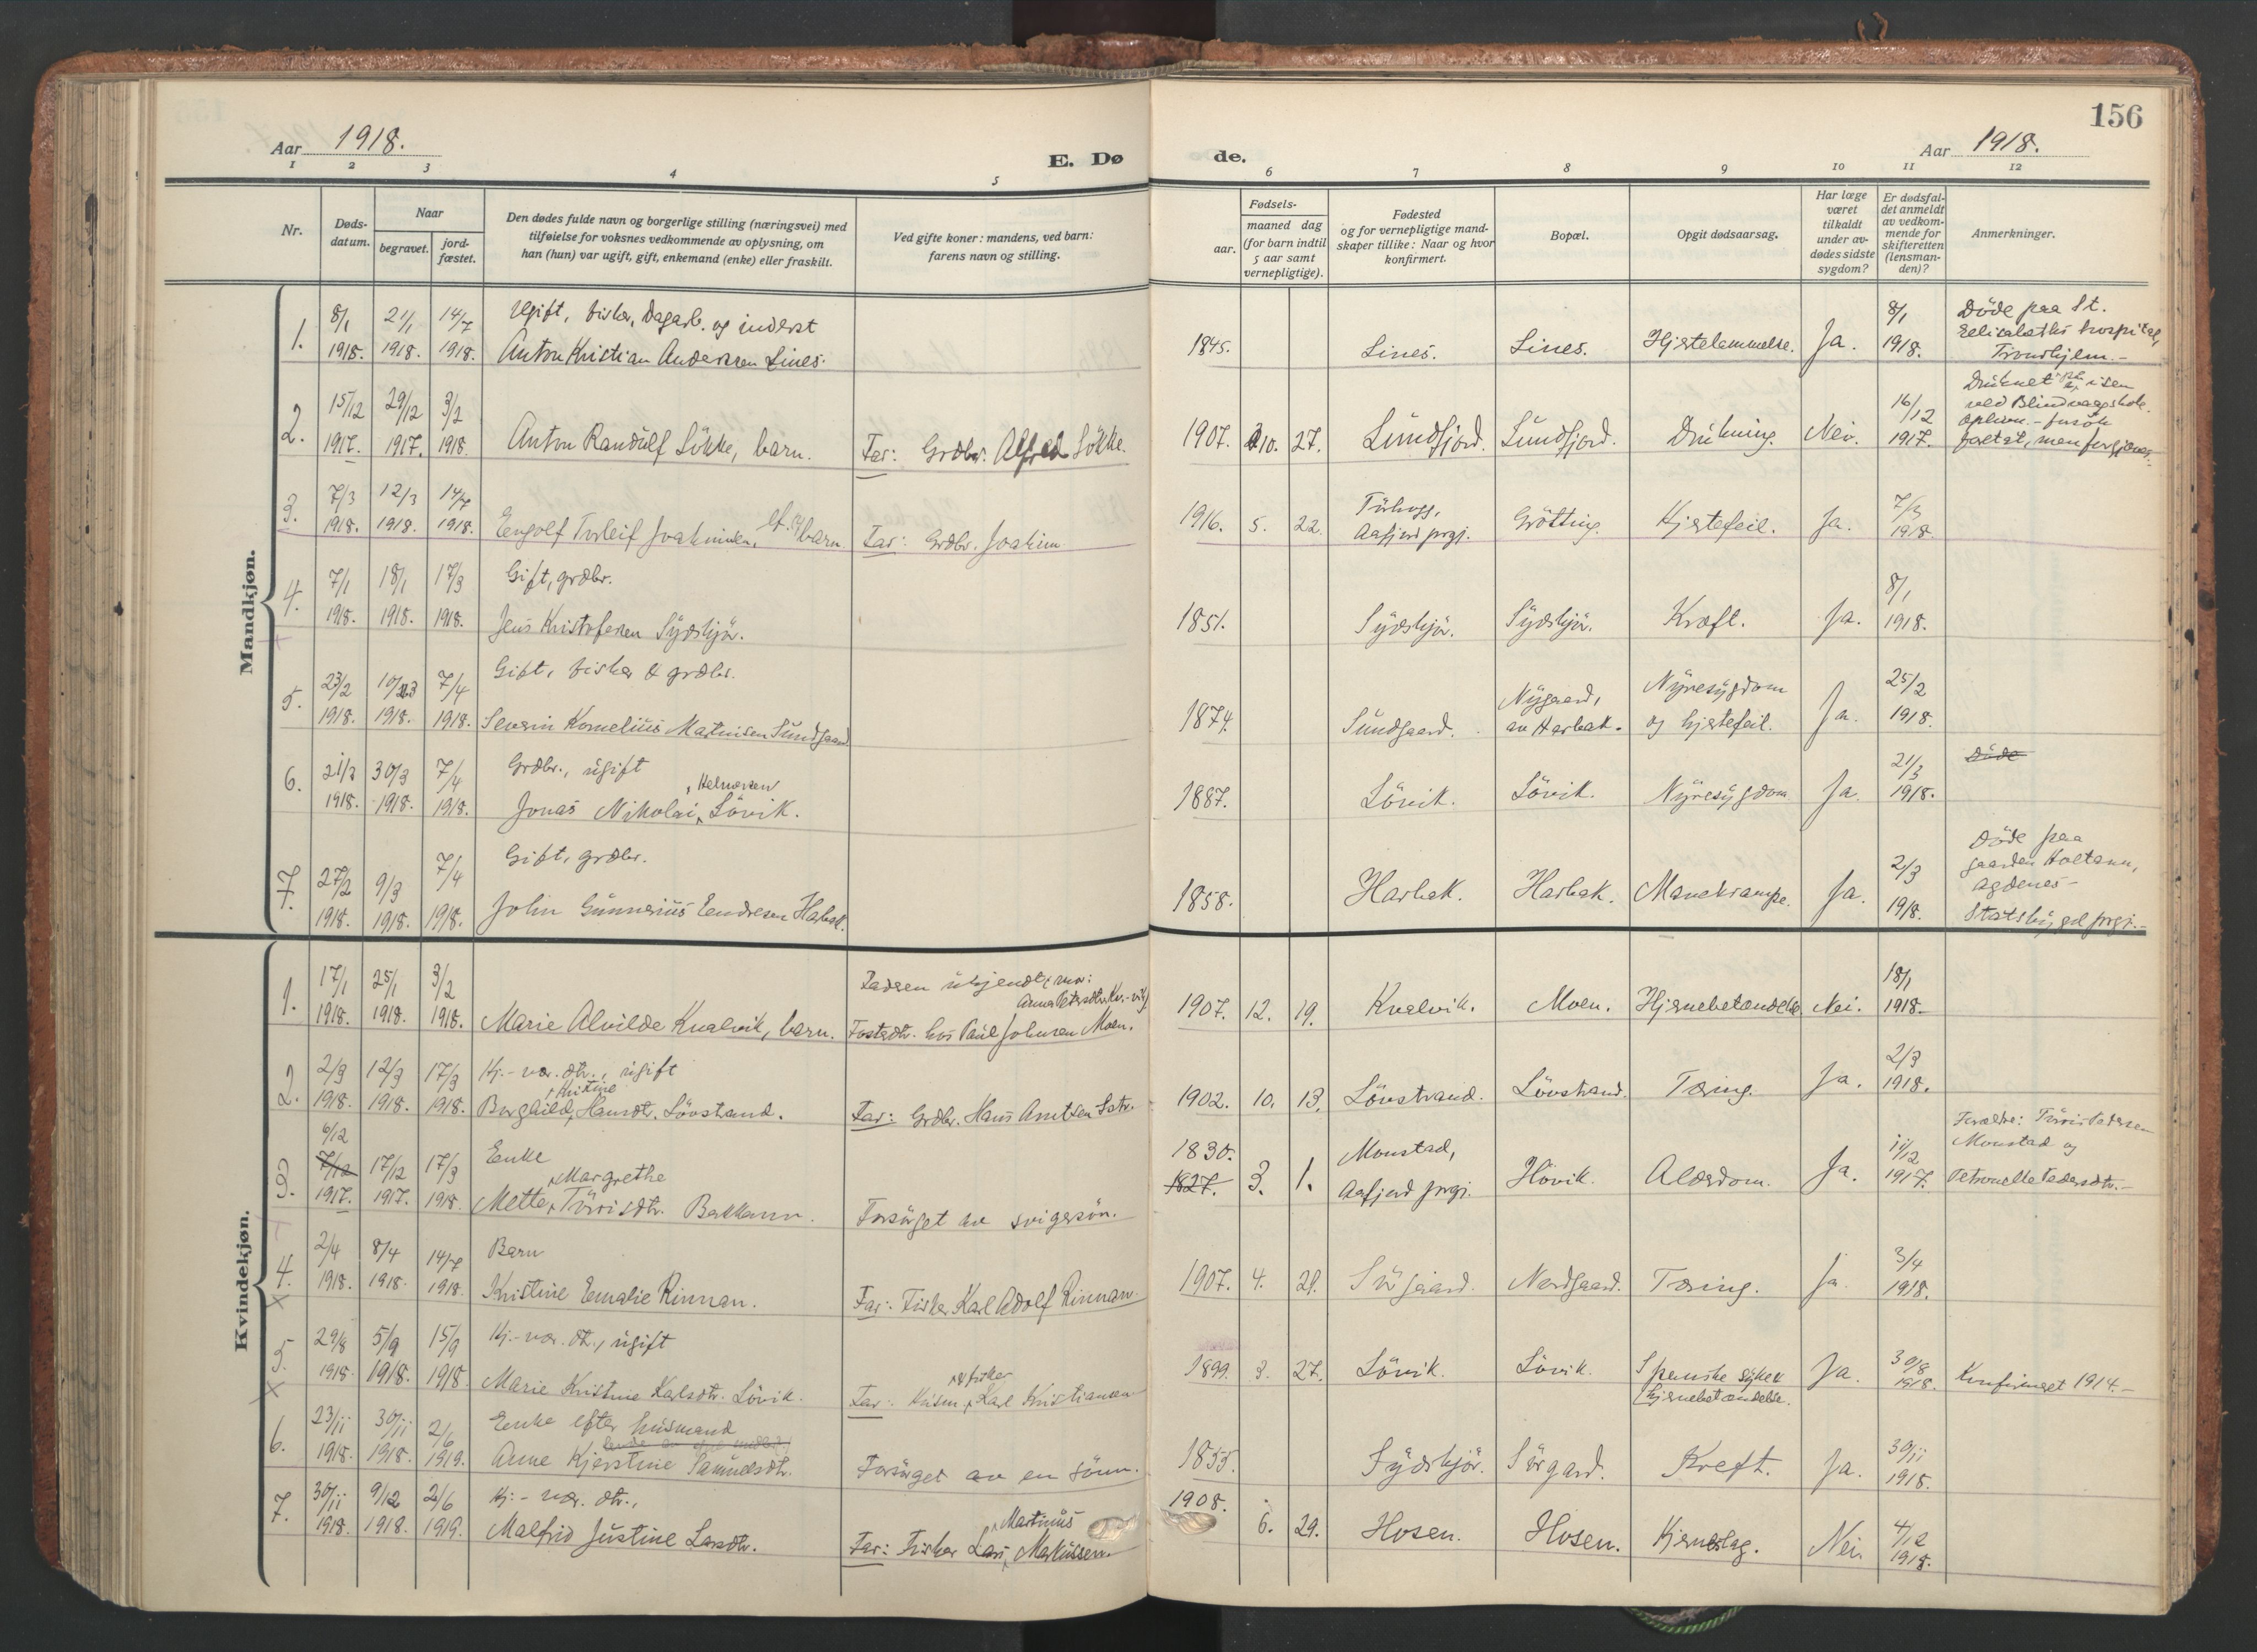 156
Aar 1918.
E. Dø
de.
Aar 1918.
1 2 3 4 5 6 7 8 9 10 11 12
Nr.
Døds-
datum.
Naar
begravet.
jord-
fæstet.
Den dødes fulde navn og borgerlige stilling (næringsvei) med
tilføielse for voksnes vedkommende av oplysning, om
han (hun) var ugift, gift, enkemand (enke) eller fraskilt.
Ved gifte koner: mandens, ved barn:
farens navn og stilling.
Fødsels-
aar.
maaned dag
(for barn indtil
5 aar samt
vernepligtige).
Fødested
og for vernepligtige mand-
skaper tillike: Naar og hvor
konfirmert.
Bopæl.
Opgit dødsaarsag.
Har læge
været
tilkaldt
under av-
dødes sidste
sygdom?
Er dødsfal-
det anmeldt
av vedkom-
mende for
skifteretten
(lensman-
den)?
Anmerkninger.
Mandkjøn.
1. 8/1 1918. 21/1 1918. 14/7 1918.
Ugift, fisker, dagarb. og inderst
Anton Kristian Andersen Lines.
1845. Lines. Lines. Hjertelammelse. Ja. 8/1 1918.
Döde paa St.
Elisabeths hospital,
Trondhjem.-
2. 15/12 1917. 29/12 1917. 3/2 1918.
Anton Randulf Sökke, barn.
Far: Grdbr. Alfred Sökke.
1907. 10. 27. Sundfjord. Sundfjord. Drukning. Nei. 16/12 1917.
Druknet isen
ved
forsök
foretat, men forgjæves.
3. 7/3 1918. 12/3 1918. 14/7 1918.
Engolf Torleif Joakimsen, barn.
Far: Grdbr. Joakim
1916. 5. 22.
Aafjord prgj. Grötting. Hjertefeil. Ja. 7/3 1918.
4. 7/1 1918. 18/1 1918. 17/3 1918.
Gift, grdbr.
Jens Kristofersen Sydskjör.
1851. Sydskjör. Sydskjör. Kræft. Ja. 8/1 1918.
5. 23/2 1918. 10/3 1918. 7/4 1918.
Gift, fisker & grdbr.
Severin Kornelius Martinsen Sundgaard
1874. Sundgaard.
Nygaard,
av Harbak.
Nyresygdom
og hjertefeil. Ja. 25/2 1918.
6. 21/3 1918. 30/3 1918. 7/4 1918.
Grdbr., ugift
Helmersen
Jonas Nikolai Lövik.
1887. Lövik. Lövik. Nyresygdom Ja. 21/3 1918.
Döde
7. 27/2 1918. 9/3 1918. 7/4 1918.
Gift, grdbr.
John Gunnerius Endresen Harbak.
1858. Harbak. Harbak. Mavekrampe. Ja. 2/3 1918.
Döde paa
gaarden Holtann,
Agdenes-
Statsbygd prgj.-
Kvindekjøn.
1. 17/1 1918. 25/1 1918. 3/2 1918.
Marie Alvilde Kvalvik, barn.
Faderen ukjendt, mor:
Anna Petersdtr. Kv.-vik
Fosterdtr. hos Paul Johnsen Moen.
1907. 12. 19. Kvalvik. Moen. Hjernebetændelse. Nei. 18/1 1918.
2. 2/3 1918. 12/3 1918. 17/3 1918.
Hj.-vær. dtr., ugift
Kristine
Borghild Hansdtr. Lövstrand.
Far: Grdbr. Hans Arntsen Lstr.
1902. 10. 13. Lövstrand. Lövstrand. Tæring. Ja. 2/3 1918.
3. 6/12 7/12 1917. 17/12 1917. 17/3 1918.
Enke
Margrethe
Mette Turrisdtr. Bakkann.
Forsörget av svigersön.
1830. 1827. 3. 1.
Monstad,
Aafjord prgj. Hövik. Alderdom. Ja. 11/12 1917.
Forældre: Turris Pedersen
Monstad og
Petronelle Pedersdtr.-
4. 2/4 1918. 8/4 1918. 14/7 1918.
Barn
Kristine Emalie Rinnan.
Far: Fisker Karl Adolf Rinnan.
1907. 4. 29. Sörgaard. Nordgaard. Tæring. Ja. 3/4 1918.
5. 29/8 1918. 5/9 1918. 15/9 1918.
Hj.-vær. dtr., ugift
Marie Kristine Karlsdtr. Lövik.
& fisker
Far: Husm. Karl Kristiansen
1899. 3. 27. Lövik. Lövik.
Spanske syke &
hjernebetændelse. Ja. 30/8 1918. Konfirmert 1914.-
6. 23/11 1918. 30/11 1918. 2/6 1919.
Enke efter husmand
Anne Kjerstine Samuelsdtr.
Forsörget av en sönn.
1855. Sydskjör. Sörgard. Kreft. Ja. 30/11 1918.
7. 30/11 1918. 9/12 1918. 2/6 1919.
Hj.-vær. dtr.,
Malfrid Justine Larsdtr.
Martinus
Far: Fisker Lars Markussen.
1908. 6. 29. Hosen. Hosen. Hjerneslag. Nei. 4/12 1918.